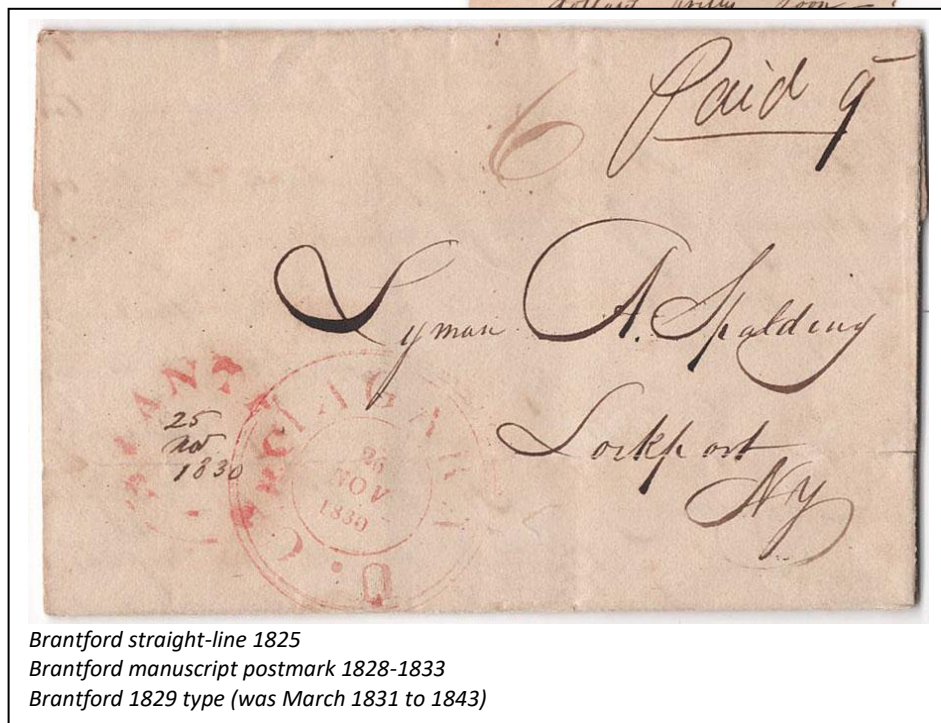 dollars pretty soon —
Paid 9
6
Lyman A. Spalding
Lockport
NY
25
Nov
1830
NIAGARA
26
NOV
1830
U. C
Brantford straight-line 1825
Brantford manuscript postmark 1828-1833
Brantford 1829 type (was March 1831 to 1843)